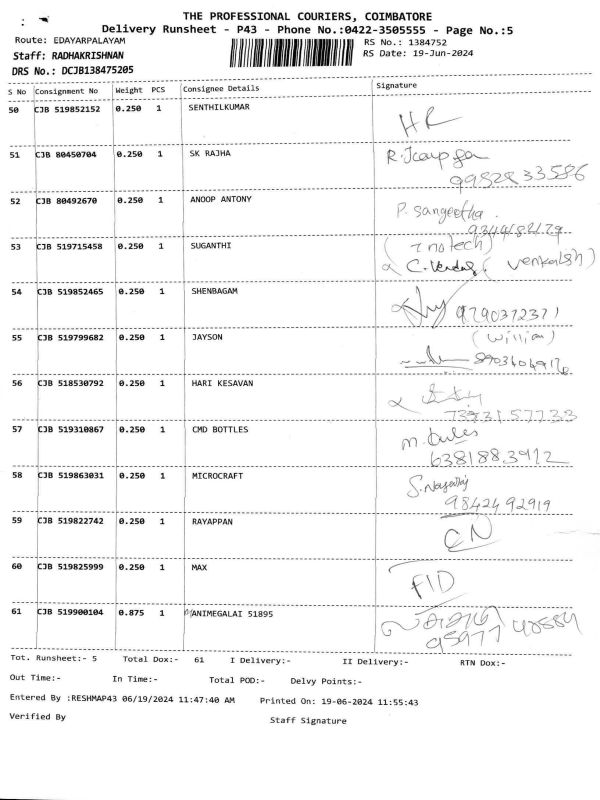 THE PROFESSIONAL COURIERS, COIMBATORE
Delivery Runsheet - P43 - Phone No.:0422-3505555 - Page No.:5
Route: EDAYARPALAYAM
RS No.: 1384752
Staff: RADHAKRISHNAN
RS Date: 19-Jun-2024
DRS No.: DCJB138475205
S No Consignment No Weight PCS Consignee Details Signature
50 CJB 519852152 0.250 1 SENTHILKUMAR
HR
51 CJB 80450704 0.250 1 SK RAJHA
52 CJB 80492670 0.250 1 ANOOP ANTONY
P. Sangeetha
53 CJB 519715458 0.250 1 SUGANTHI
54 CJB 519852465 0.250 1 SHENBAGAM
9790372371
55 CJB 519799682 0.250 1 JAYSON
(William)
56 CJB 518530792 0.250 1 HARI KESAVAN
57 CJB 519310867 0.250 1 CMD BOTTLES
6381883912
58 CJB 519863031 0.250 1 MICROCRAFT
9842492919
59 CJB 519822742 0.250 1 RAYAPPAN
CN
60 CJB 519825999 0.250 1 MAX
FID
61 CJB 519900104 0.875 1 MANIMEGALAI 51895
Tot. Runsheet:- 5 Total Dox:- 61 I Delivery:- II Delivery:- RTN Dox:-
Out Time:- In Time:- Total POD:- Delvy Points:-
Entered By :RESHMAP43 06/19/2024 11:47:40 AM Printed On: 19-06-2024 11:55:43
Verified By Staff Signature